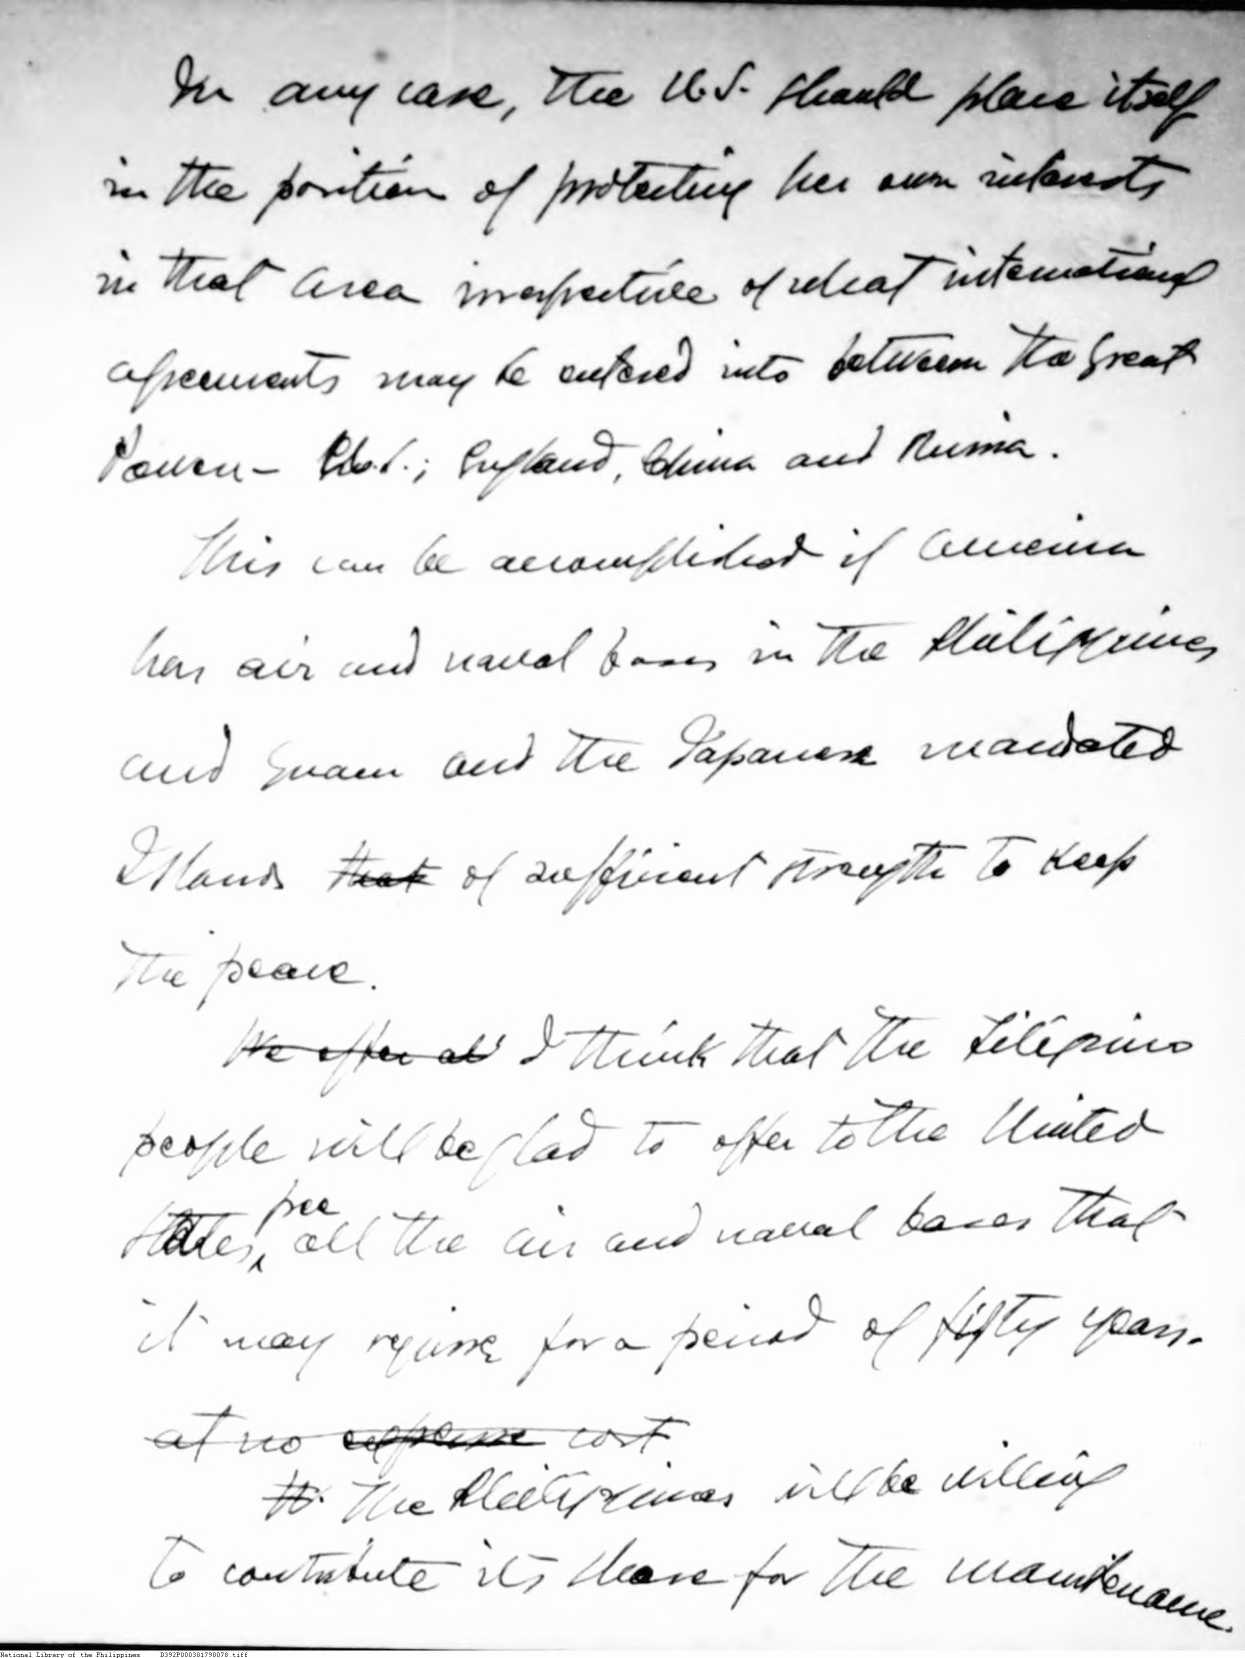 In any case, the U.S. should place itself
in the position of protecting her own interests
in that area irrespective of what international
agreements may be entered into between the Great
Powers – U.S.; England, China and Russia.
This can be accomplished if America
has air and naval bases in the Philippines
and Guam and the Japanese mandated
Islands that of sufficient strength to keep
the peace.
We offer all I think that the Filipino
people will be glad to offer to the United
free
States, all the air and naval bases that
it may require for a period of fifty years.
at no expense cost
The Philippines will be willing
to contribute its share for the maintenance.
National Library of the Philippines D392P000301790078.tiff